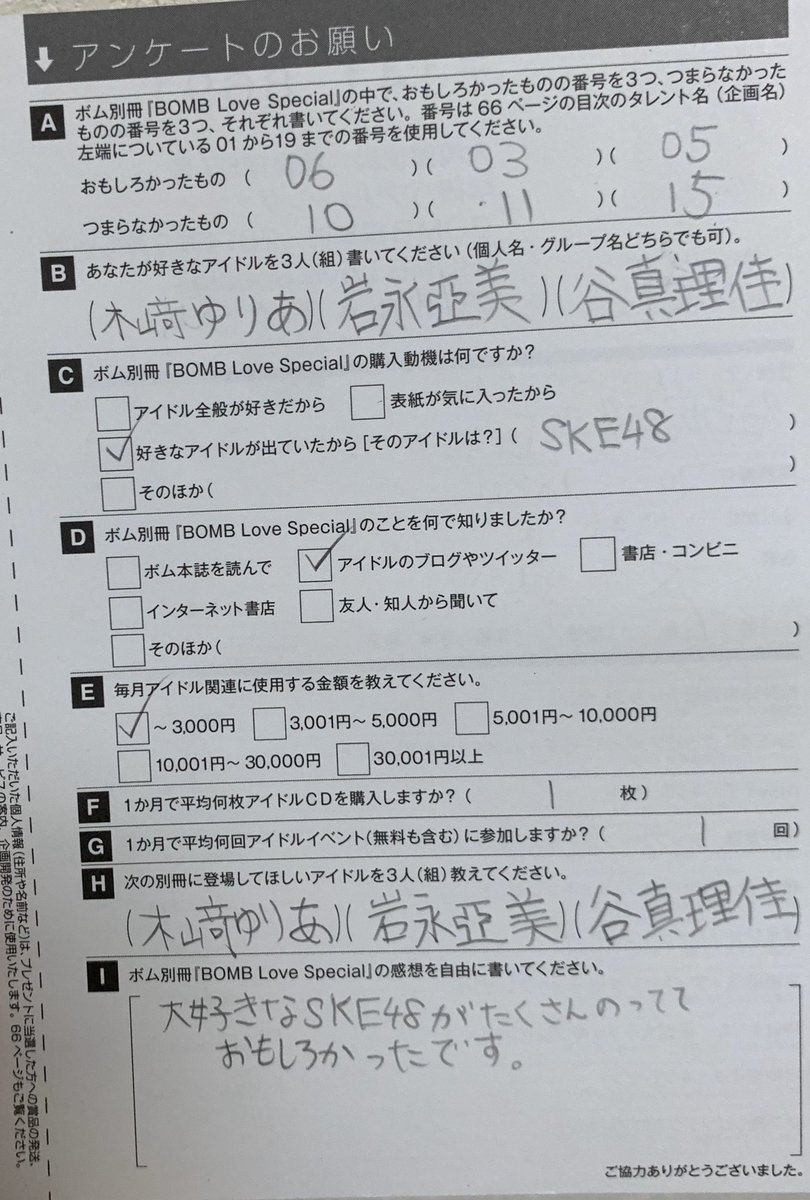 アンケートのお願い
A ボム別冊『BOMB Love Special』の中で、おもしろかったものの番号を3つ、つまらなかった
ものの番号を3つ、それぞれ書いてください。番号は66ページの目次のタレント名(企画名)
左端についている01から19までの番号を使用してください。
おもしろかったもの ( 06 )( 03 )( 05 )
つまらなかったもの ( 10 )( 11 )( 15 )
B あなたが好きなアイドルを3人(組)書いてください(個人名・グループ名どちらでも可)。
(木﨑ゆりあ)(岩永亞美)(谷真理佳)
C ボム別冊『BOMB Love Special』の購入動機は何ですか?
アイドル全般が好きだから 表紙が気に入ったから
好きなアイドルが出ていたから[そのアイドルは?]( SKE48 )
そのほか( )
D ボム別冊『BOMB Love Special』のことを何で知りましたか?
ボム本誌を読んで アイドルのブログやツイッター 書店・コンビニ
インターネット書店 友人・知人から聞いて
そのほか( )
E 毎月アイドル関連に使用する金額を教えてください。
~3,000円 3,001円~5,000円 5,001円~10,000円
10,001円~30,000円 30,001円以上
F 1か月で平均何枚アイドルCDを購入しますか?( 1 枚)
G 1か月で平均何回アイドルイベント(無料も含む)に参加しますか?( 1 回)
H 次の別冊に登場してほしいアイドルを3人(組)教えてください。
(木﨑ゆりあ)(岩永亞美)(谷真理佳)
I ボム別冊『BOMB Love Special』の感想を自由に書いてください。
大好きなSKE48がたくさんのってて
おもしろかったです。
ご協力ありがとうございました。
ご記入いただいた個人情報(住所や名前など)は、プレゼントに当選した方への賞品の発送、
企画開発のために使用いたします。66ページもご覧ください。